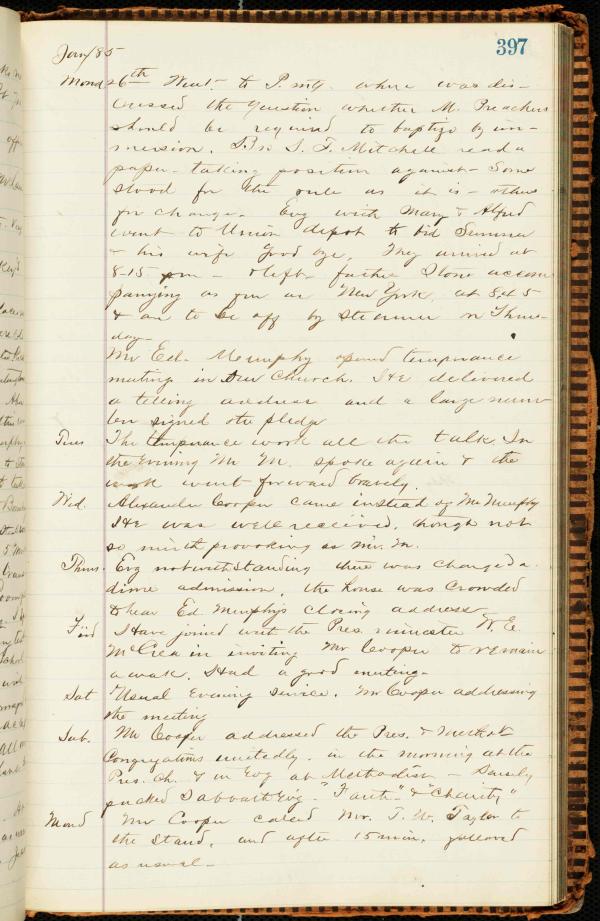 397
Jany/85
Mond 26th Went to P. mtg. where was dis-
cussed the question whether M. Preachers
should be required to baptize by im-
mersion. Bro S. F. Mitchell read a
paper taking position against - Some
stood for the rule as it is - others
for change. Evg with Mary & Alfred
went to Union depot to bid Sumner
& his wife good bye. They arrived at
8-15 pm - & left father Stone accom
panying as far as New York, at 8.45
& are to be off by steamer on Thurs-
day-
Mr Ed. Murphy opened temperance
meeting in our Church. He delivered
a telling address and a large num
ber signed the pledge
Tues The temperance work all the talk. In
the Evening Mr M. spoke again & the
work went forward bravely.
Wed. Alexander Cooper came instead of Mr Murphy
He was well received, though not
so mirth provoking as Mr. M.
Thurs. Evg notwithstanding there was charged a
dime admission, the house was crowded
to hear Ed Murphy's closing address
Frid I Have joined with the Pres. minister W. E.
McCrea in inviting Mr Cooper to remain
a week. Had a good meeting-
Sat Usual Evening service. Mr Cooper addressing
the meeting
Sab. Mr Cooper addressed the Pres. & Methot
Congregations unitedly. in the morning at the
Pres. Ch. & in Evg at Methodist - Densely
packed Sabbath Evg. "Faith" & "Charity"
Mond Mr Cooper called Mr. T. W. Taylor to
the stand, and after 15 min. followed
as usual -